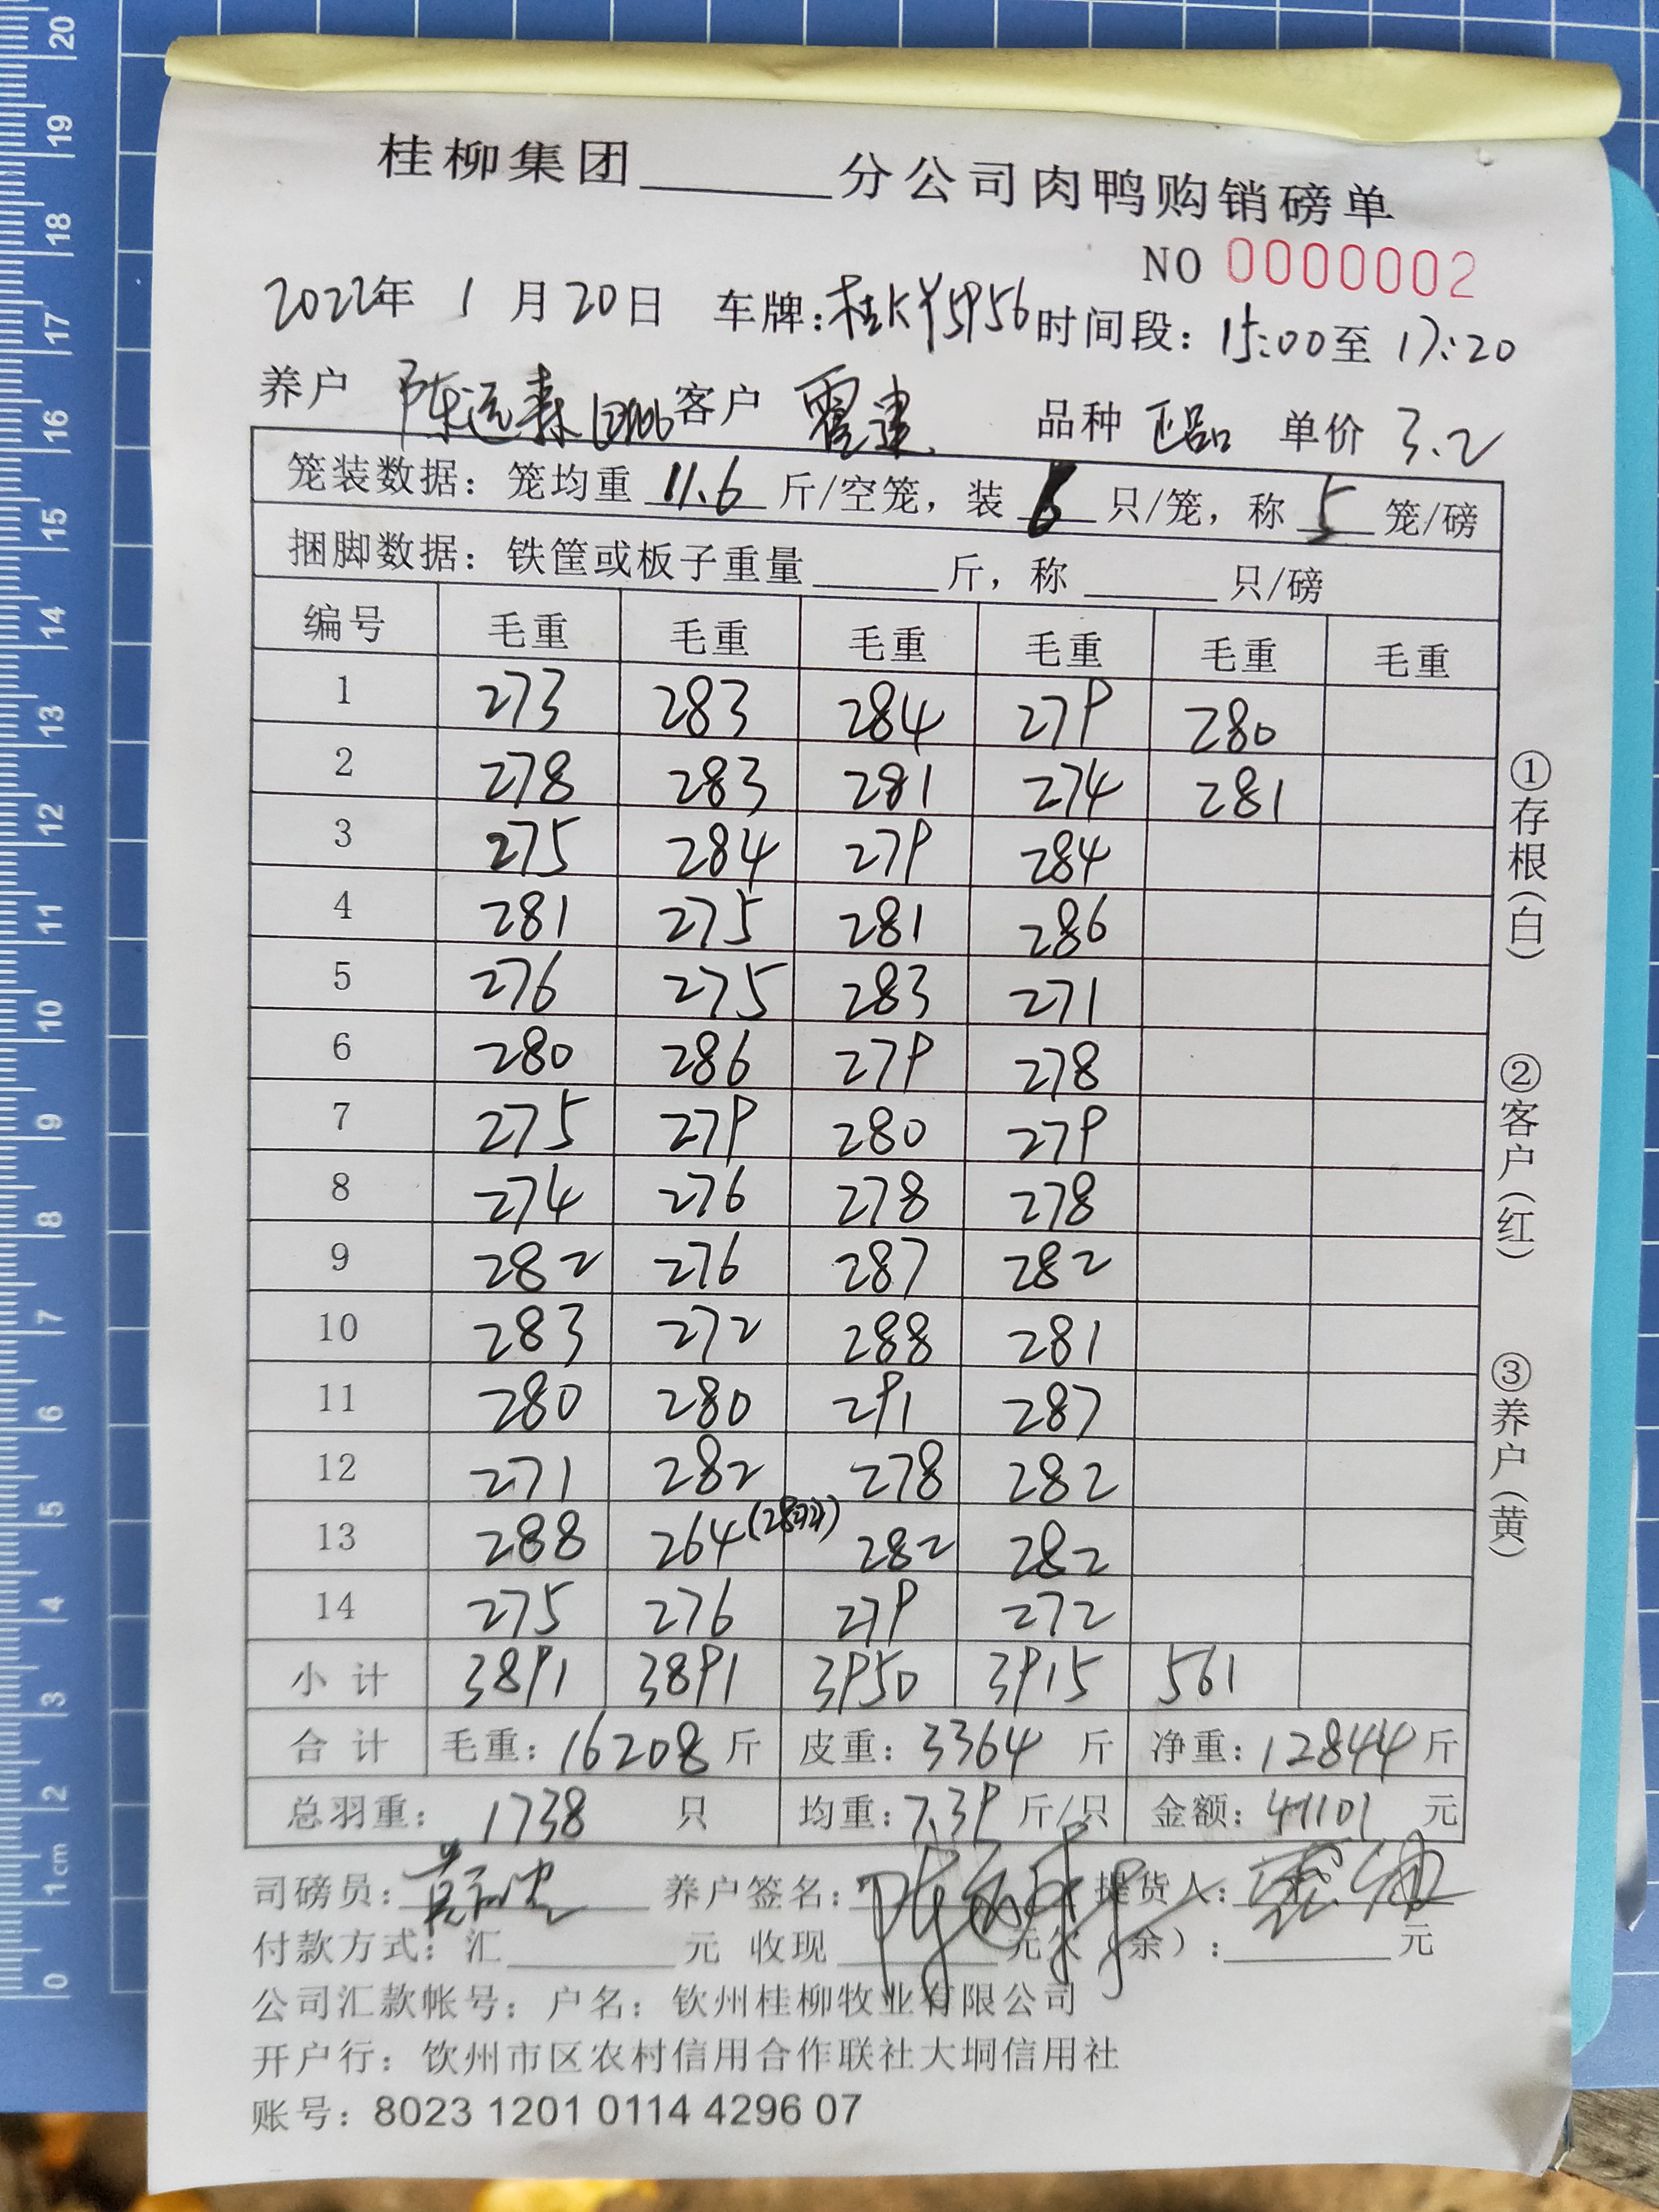 桂柳集团______分公司肉鸭购销磅单
NO 0000002
2022年 1 月 20日 车牌: 时间段: 15:00至 17:20
养户 陈远森 客户 品种 正品 单价 3.2
笼装数据: 笼均重 11.6 斤/空笼, 装 6 只/笼, 称 5 笼/磅
捆脚数据: 铁筐或板子重量______斤, 称______只/磅
编号 毛重 毛重 毛重 毛重 毛重 毛重
1 273 283 284 279 280
2 278 283 281 274 281
3 275 284 279 284
4 281 275 281 286
5 276 275 283 271
6 280 286 279 278
7 275 279 280 279
8 274 276 278 278
9 282 276 287 282
10 283 272 288 281
11 280 280 291 287
12 271 282 278 282
13 288 264 282 282
14 275 276 279 272
小计 3891 3891 3950 3915 561
合计 毛重: 16208 斤 皮重: 3364 斤 净重: 12844 斤
总羽重: 1738 只 均重: 7.39 斤/只 金额: 41101 元
司磅员: 养户签名: 提货人:
付款方式: 汇______元 收现______元欠(余):______元
公司汇款帐号: 户名: 钦州桂柳牧业有限公司
开户行: 钦州市区农村信用合作联社大垌信用社
账号: 8023 1201 0114 4296 07
①存根(白)
②客户(红)
③养户(黄)
20
19
18
17
16
15
14
13
12
11
10
9
8
7
6
5
4
3
2
1cm
0